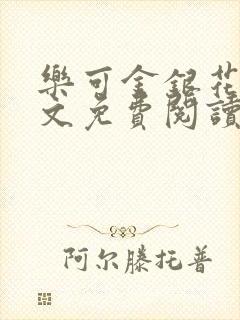 樂可金銀花
文免費閱讀
阿尔滕托普